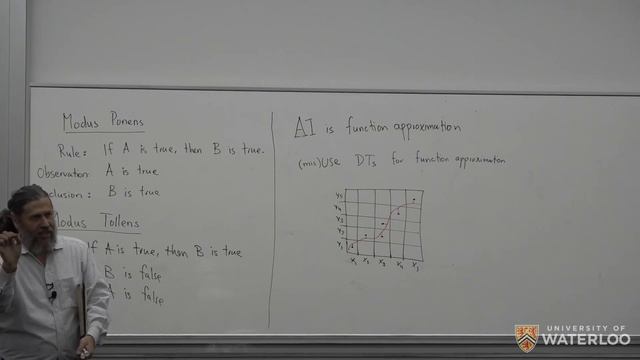 Modus Ponens
Rule: If A is true, then B is true.
Observation: A is true
clusion: B is true
Modus Tollens
If A is true, then B is true
B is false
A is false
AI is function approximation
(mis)Use DTs for function approximation
Y5
Y4
Y3
Y2
Y1
X1 X2 X3 X4 X5
UNIVERSITY OF
WATERLOO